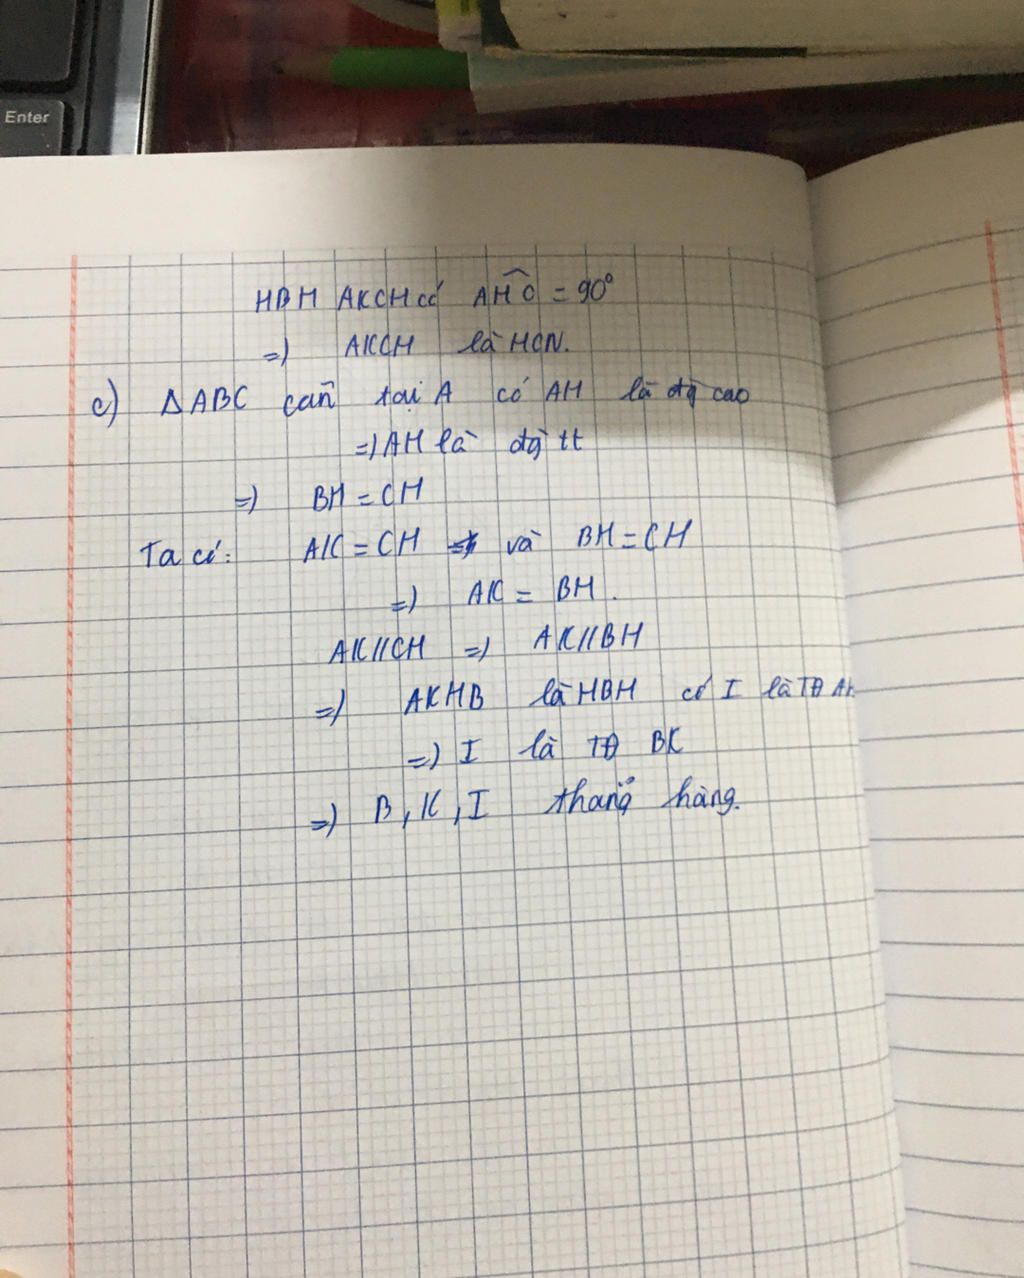 Enter
HBH AKCH có AHC = 90°
=) AKCH là HCN.
c) ΔABC cân tại A có AH là đg cao
=) AH là đg tt
=) BH = CH
Ta có: AK = CH và BH = CH
=) AK = BH.
AK//CH =) AK//BH
=) AKHB là HBH có I là TĐ AH
=) I là TĐ BK
=) B, K, I thẳng hàng.